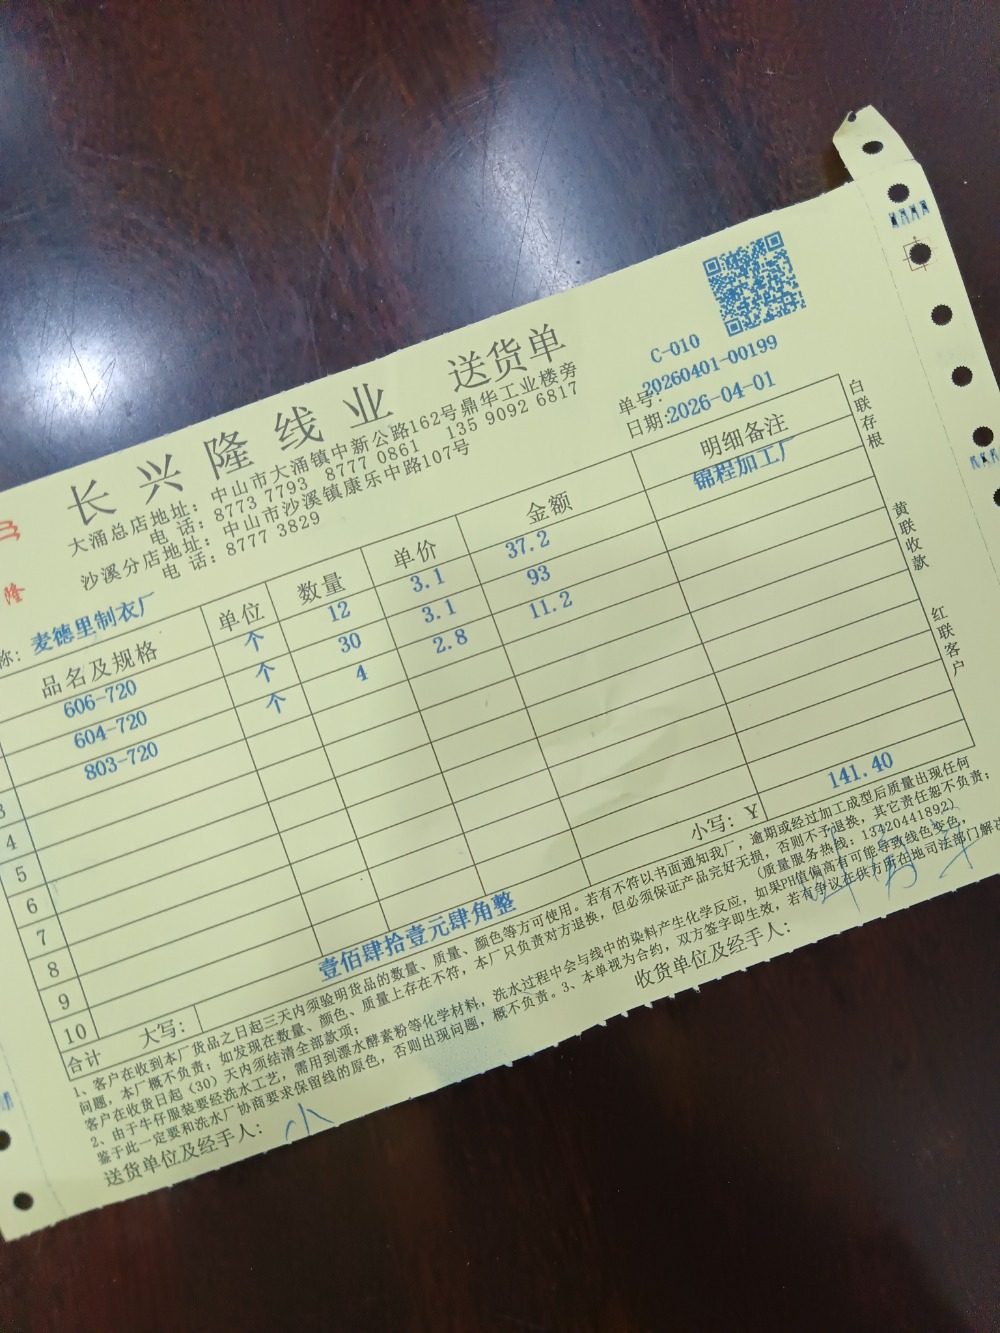 长兴隆线业 送货单
C-010
单号:20260401-00199
日期:2026-04-01
大涌总店地址: 中山市大涌镇中新公路162号鼎华工业楼旁
电 话: 8773 7793 8777 0861 135 9092 6817
沙溪分店地址: 中山市沙溪镇康乐中路107号
电 话: 8777 3829
隆
称: 麦德里制衣厂
品名及规格 单位 数量 单价 金额 明细备注
606-720 个 12 3.1 37.2 锦程加工厂
604-720 个 30 3.1 93
803-720 个 4 2.8 11.2
3
4
5
6
7
8
9
10
合计 大写: 壹佰肆拾壹元肆角整 小写: Y 141.40
1、客户在收到本厂货品之日起三天内须验明货品的数量、质量、颜色等方可使用。若有不符以书面通知我厂, 逾期或经过加工成型后质量出现任何
问题, 本厂概不负责; 如发现在数量、颜色、质量上存在不符, 本厂只负责对方退换, 但必须保证产品完好无损, 否则不予退换, 其它责任恕不负责;
客户在收货日起 (30) 天内须结清全部款项; (质量服务热线: 13420441892)
2、由于牛仔服装要经洗水工艺, 需用到漂水酵素粉等化学材料, 洗水过程中会与线中的染料产生化学反应, 如果PH值偏高有可能导致线色变色,
鉴于此一定要和洗水厂协商要求保留线的原色, 否则出现问题, 概不负责。3、本单视为合约, 双方签字即生效, 若有争议在供方所在地司法部门解决
送货单位及经手人: 小 收货单位及经手人:
白联存根
黄联收款
红联客户